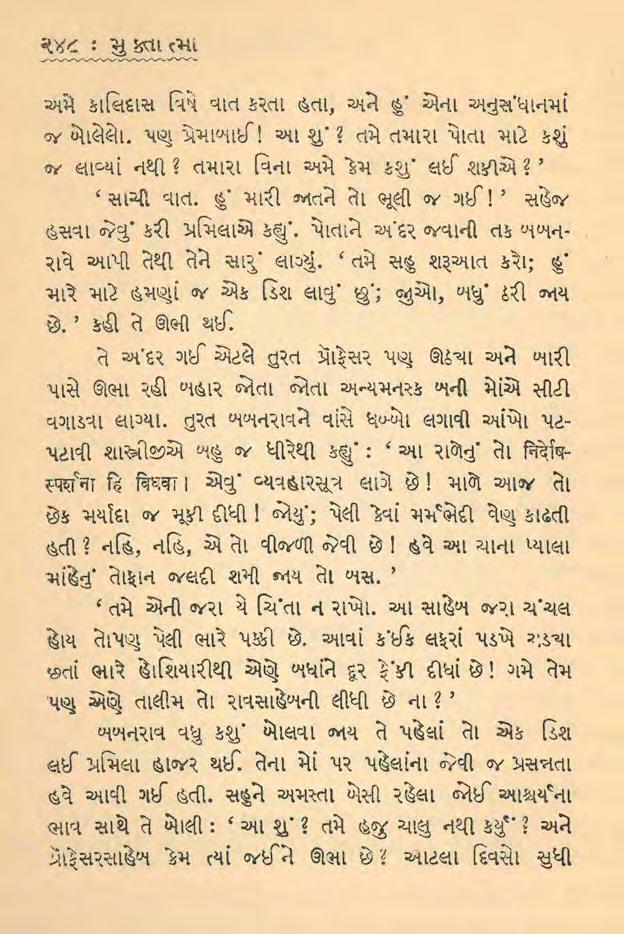 ૨૪૮ : મુક્તાત્મા
અમે કાલિદાસ વિષે વાત કરતા હતા, અને હું એના અનુસંધાનમાં
જ બોલેલો. પણ પ્રેમાબાઈ! આ શું? તમે તમારા પોતા માટે કશું
જ લાવ્યાં નથી? તમારા વિના અમે કેમ કશું લઈ શકીએ?’
‘સાચી વાત. હું મારી જાતને તો ભૂલી જ ગઈ!’ સહેજ
હસવા જેવું કરી પ્રમિલાએ કહ્યું. પોતાને અંદર જવાની તક બબન-
રાવે આપી તેથી તેને સારું લાગ્યું. ‘તમે સહુ શરૂઆત કરો; હું
મારે માટે હમણાં જ એક ડિશ લાવું છું; જુઓ, બધું ઠરી જાય
છે.’ કહી તે ઊભી થઈ.
તે અંદર ગઈ એટલે તુરત પ્રૉફેસર પણ ઊઠ્યા અને બારી
પાસે ઊભા રહી બહાર જોતા જોતા અન્યમનસ્ક બની મોંએ સીટી
વગાડવા લાગ્યા. તુરત બબનરાવને વાંસે ધબ્બો લગાવી આંખો પટ-
પટાવી શાસ્ત્રીજીએ બહુ જ ધીરેથી કહ્યું : ‘આ રાળેનું તો निर्दोष-
स्पर्शना हि विधवा। એવું વ્યવહારસૂત્ર લાગે છે! માળે આજ તો
છેક મર્યાદા જ મૂકી દીધી! જોયું; પેલી કેવાં મર્મભેદી વેણ કાઢતી
હતી? નહિ, નહિ, એ તો વીજળી જેવી છે! હવે આ ચાના પ્યાલા
માંહેનું તોફાન જલદી શમી જાય તો બસ.’
‘તમે એની જરા યે ચિંતા ન રાખો. આ સાહેબ જરા ચંચલ
હોય તોપણ પેલી ભારે પક્કી છે. આવાં કંઈક લફરાં પડખે ચડ્યા
છતાં ભારે હોશિયારીથી એણે બધાંને દૂર ફેંકી દીધાં છે! ગમે તેમ
પણ એણે તાલીમ તો રાવસાહેબની લીધી છે ના?’
બબનરાવ વધુ કશું બોલવા જાય તે પહેલાં તો એક ડિશ
લઈ પ્રમિલા હાજર થઈ. તેના મોં પર પહેલાંના જેવી જ પ્રસન્નતા
હવે આવી ગઈ હતી. સહુને અમસ્તા બેસી રહેલા જોઈ આશ્ચર્યના
ભાવ સાથે તે બોલી : ‘આ શું? તમે હજુ ચાલુ નથી કર્યું? અને
પ્રૉફેસરસાહેબ કેમ ત્યાં જઈને ઊભા છે? આટલા દિવસો સુધી